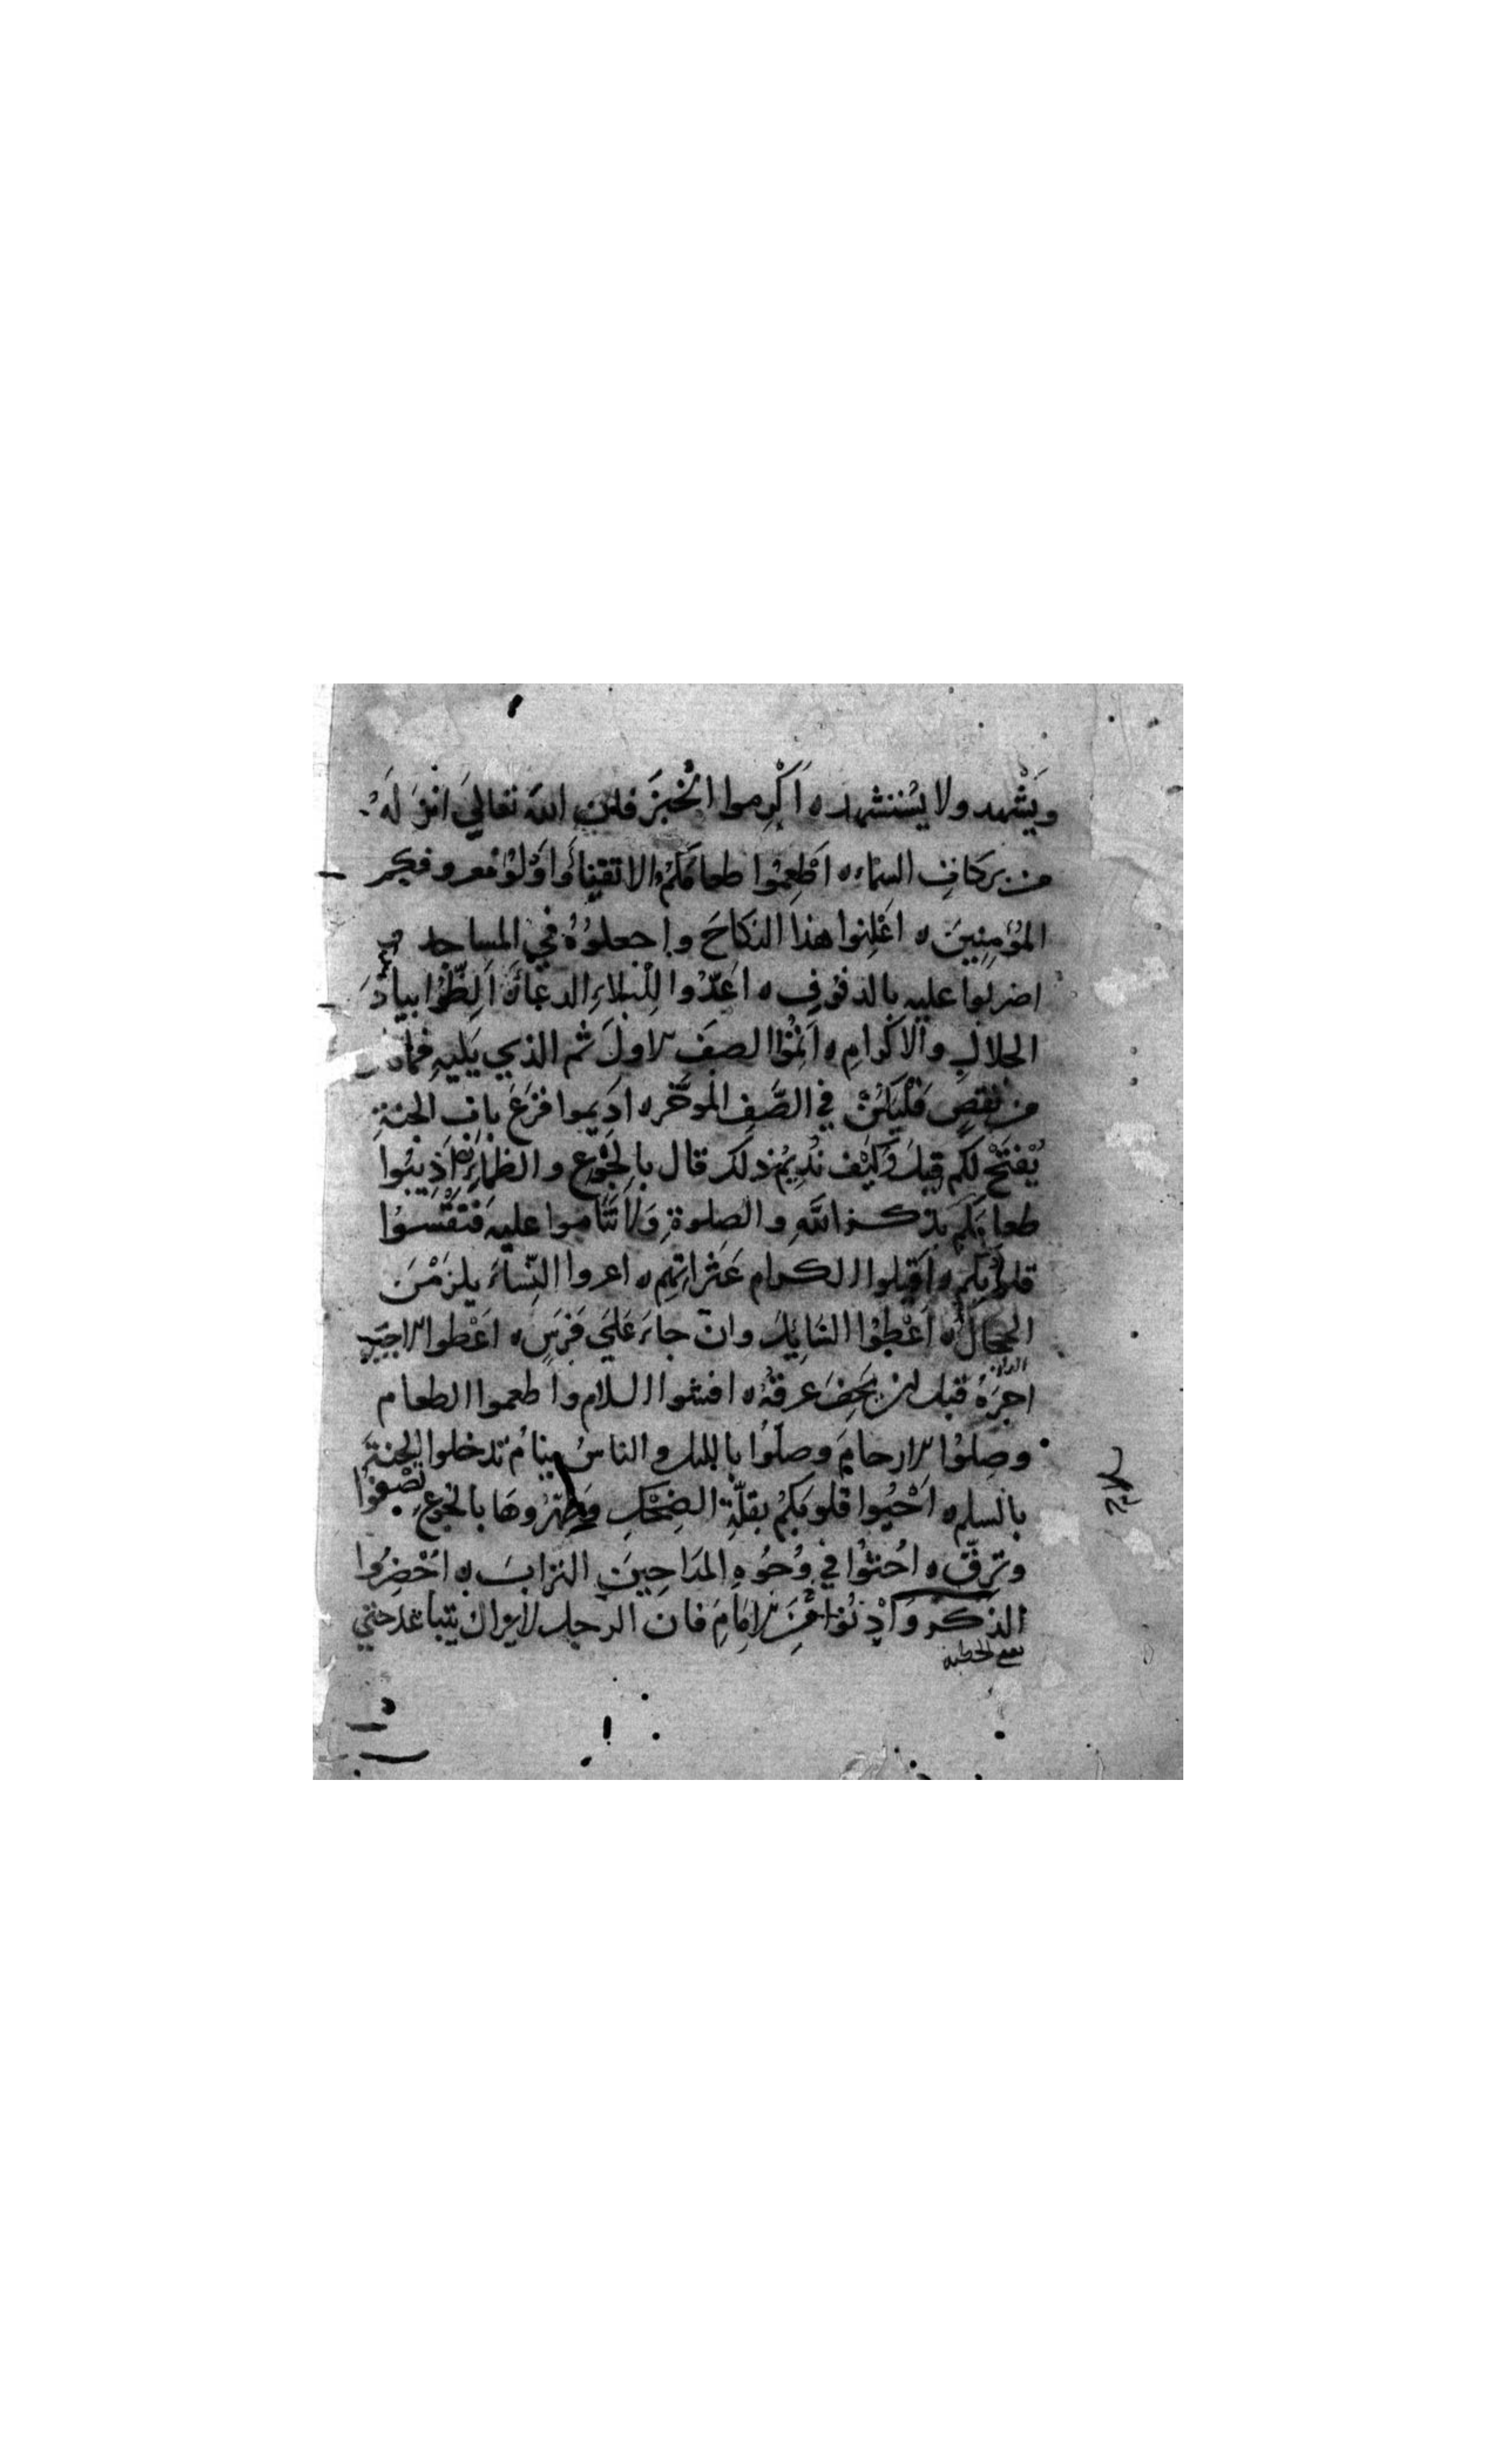 وَيَشْهد ولا يُسْتشهد ه أَكْرِموا الخُبْزَ فان الله تعالى انزلَهُ
من بركاتِ السماء ه اَطْعِمُوا طعامَكُمُ الاتقياءَ واَوْلُوا معروفكم
المؤمِنِينَ ه اعْلِنوا هذا النكاحَ واجعلوُهُ في المساجد و
اضربوا عليه بالدفوفِ ه اَعِدُّوا لِلْبَلاءِ الدعاءَ ه اَلِظُّوا بياذَا
الجلالِ والاكرامِ ه اَتِمُّوا الصفَ الاولَ ثم الذي يَليهِ فما كان
من نقصٍ فَلْيَكُنْ في الصَّفِ المُوخَّر ه ادَيموا قَرْعَ باب الجنةِ
يُفْتَحْ لكم قيل وكَيْف نُدِيمُ ذلك قال بالجُوْعِ والظماء ه اَذِيبُوا
طعامَكم بذكر اللهِ والصلوةِ وَلا تَنَاموا عليه فَتَقْسوا
قلوبُكم ه اَقِيلوا الكرام عَثَراتِهِم ه اعروا النِّساءَ يلزَمْنَ
الحجالَ ه اَعْطُوا السَايِلَ وان جاءَ عَلَي فَرَسٍ ه اَعْطوا الاجيرَ
اجرَهُ قبل ان يَجِفَ عرقهُ ه افشوا السلام واطعموا الطعام
وصِلوُا الارحامَ وصلّوا بالليل والناسُ نيامٌ تدخلوا الجنةَ
بالسلم ه اَحْيُوا قلوبَكُم بقلّةِ الضِحْكِ وطَهِّرُوهَا بالجوعِ تصْفوُا
وترقّ ه اُحْثوُا في وُجُوهِ المدَاحِينَ الترابَ ه اُحْضُرُوا
الذكْرَ وَادْنُوا مِنَ الامَامِ فان الرجل لا يزال يتباعَدُ حتي